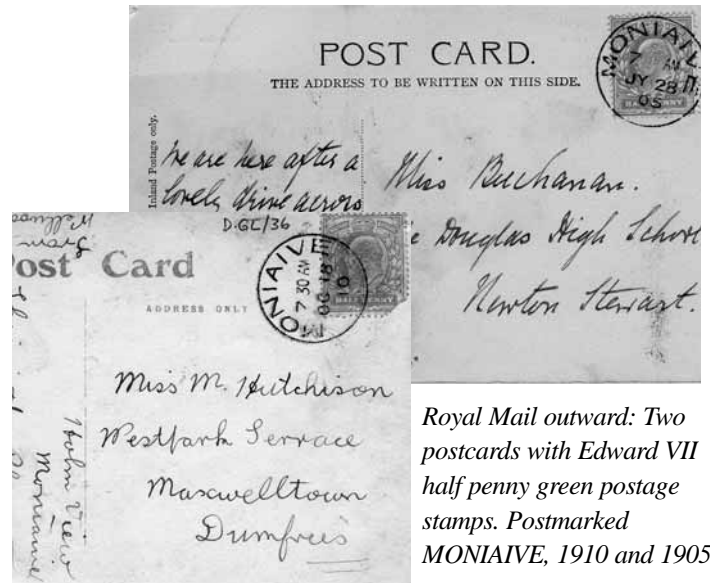 POST CARD.
THE ADDRESS TO BE WRITTEN ON THIS SIDE.
Inland Postage only.
MONIAIVE
7 AM
JY 28
05
HALF PENNY
We are here after a
lovely drive across
D.GL/36
Miss Buchanan.
Douglas High School
Newton Stewart.
Post Card
ADDRESS ONLY
MONIAIVE
7 30 AM
OC 18
10
HALFPENNY
Miss M. Hutchison
Westpark Terrace
Maxwelltown
Dumfries
Holm View
Moniaive
Royal Mail outward: Two
postcards with Edward VII
half penny green postage
stamps. Postmarked
MONIAIVE, 1910 and 1905